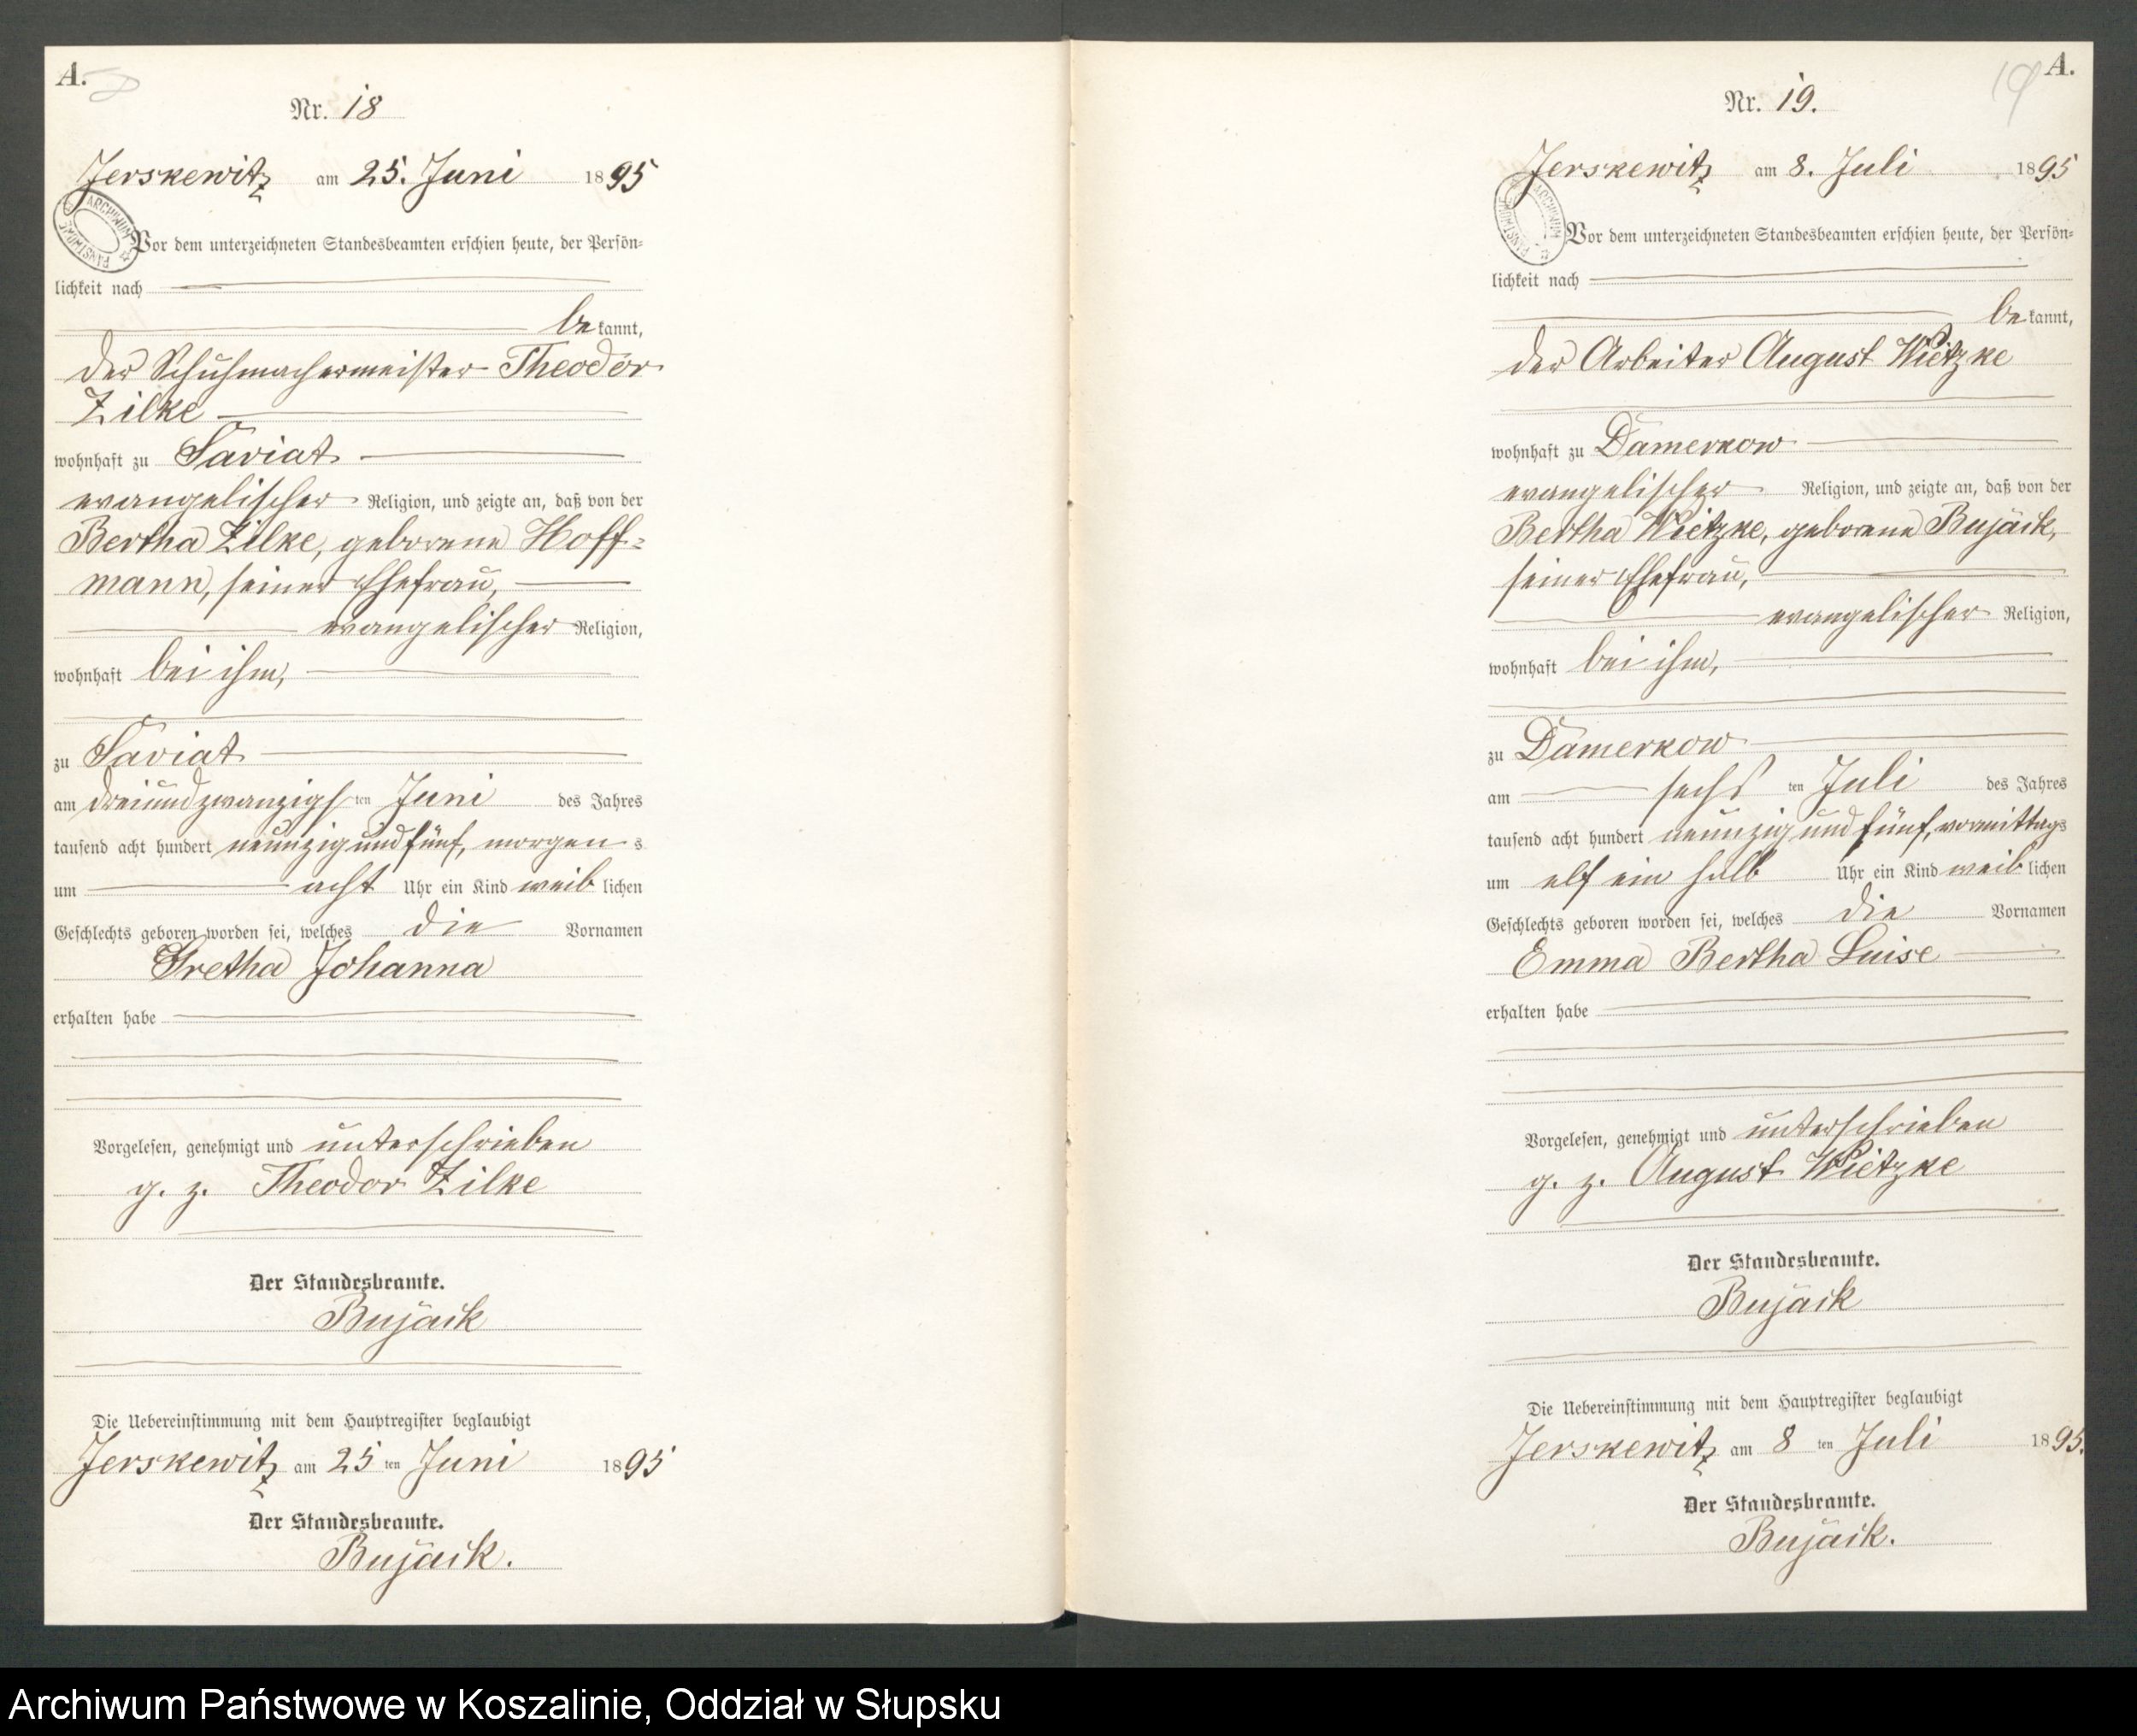 A.
Nr. 18
Jerskewitz am 25. Juni 1895
ARCHIWUM PAŃSTWOWE
Vor dem unterzeichneten Standesbeamten erschien heute, der Persön=
lichkeit nach
bekannt,
der Schuhmachermeister Theodor
Zilke
wohnhaft zu Saviat
evangelischer Religion, und zeigte an, daß von der
Bertha Zilke, geborene Hoff=
mann, seiner Ehefrau,
evangelischer Religion,
wohnhaft bei ihm,
zu Saviat
am dreiundzwanzigsten Juni des Jahres
tausend acht hundert neunzig und fünf, morgens
um acht Uhr ein Kind weiblichen
Geschlechts geboren worden sei, welches die Vornamen
Gretha Johanna
erhalten habe
Vorgelesen, genehmigt und unterschrieben
g. z. Theodor Zilke
Der Standesbeamte.
Bujack
Die Uebereinstimmung mit dem Hauptregister beglaubigt
Jerskewitz am 25 ten Juni 1895
Der Standesbeamte.
Bujack.
A.
19
Nr. 19.
Jerskewitz am 8. Juli 1895
ARCHIWUM PAŃSTWOWE
Vor dem unterzeichneten Standesbeamten erschien heute, der Persön=
lichkeit nach
bekannt,
der Arbeiter August Wietzke
wohnhaft zu Damerkow
evangelischer Religion, und zeigte an, daß von der
Bertha Wietzke, geborene Bujack,
seiner Ehefrau,
evangelischer Religion,
wohnhaft bei ihm,
zu Damerkow
am sechs ten Juli des Jahres
tausend acht hundert neunzig und fünf, vormittags
um elf ein halb Uhr ein Kind weiblichen
Geschlechts geboren worden sei, welches die Vornamen
Emma Bertha Luise
erhalten habe
Vorgelesen, genehmigt und unterschrieben
g. z. August Wietzke
Der Standesbeamte.
Bujack
Die Uebereinstimmung mit dem Hauptregister beglaubigt
Jerskewitz am 8 ten Juli 1895.
Der Standesbeamte.
Bujack.
Archiwum Państwowe w Koszalinie, Oddział w Słupsku